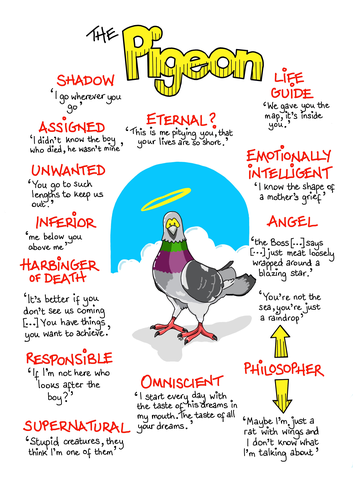 THE
Pigeon
SHADOW
'I go wherever you
go'
ASSIGNED
'I didn't know the boy
who died, he wasn't mine'
UNWANTED
'You go to such
lengths to keep us
out.'
INFERIOR
'me below you
above me'
HARBINGER
OF DEATH
'It's better if you
don't see us coming
[...] You have things
you want to achieve.'
RESPONSIBLE
'If I'm not here who
looks after the
boy?'
SUPERNATURAL
'Stupid creatures, they
think I'm one of them'
ETERNAL?
'This is me pitying you, that
your lives are so short.'
OMNISCIENT
'I start every day with
the taste of his dreams in
my mouth. The taste of all
your dreams.'
LIFE
GUIDE
'We gave you the
map, it's inside
you.'
EMOTIONALLY
INTELLIGENT
'I know the shape of
a mother's grief'
ANGEL
'the Boss [...] says
[...] just meat loosely
wrapped around a
blazing star.'
'You're not the
sea, you're just
a raindrop'
PHILOSOPHER
'Maybe I'm just a
rat with wings and
I don't know what
I'm talking about'